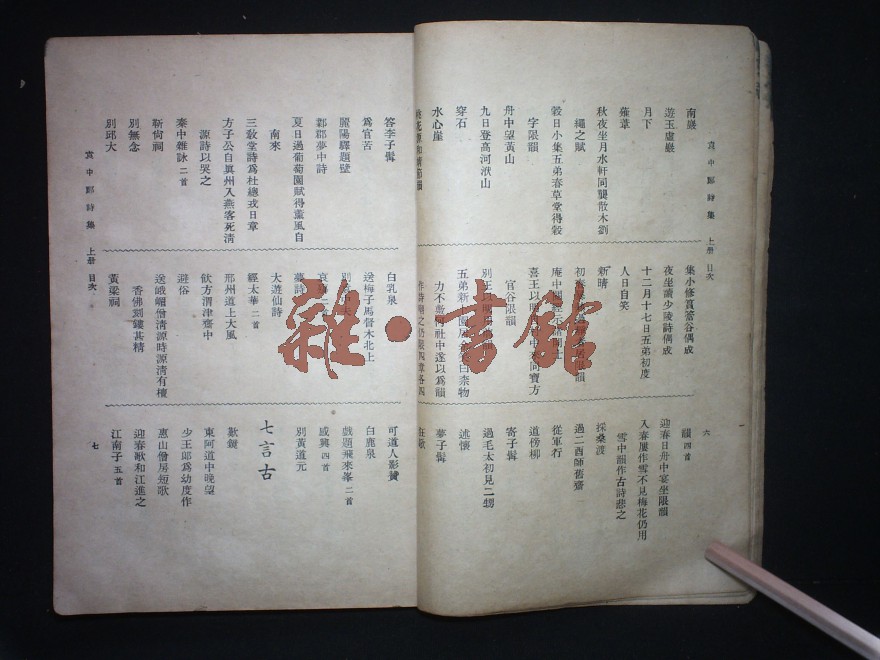 袁中郎詩集 上册 目次
六
南巖
遊玉虛巖
月下
薤葦
秋夜坐月水軒同龔散木劉
繩之賦
穀日小集五弟春草堂得穀
字限韻
舟中望黃山
九日登高河洑山
穿石
水心崖
集小修篔簹谷偶成
夜坐讀少陵詩偶成
十二月十七日五弟初度
人日自笑
新晴
官谷限韻
韻四首
迎春日舟中宴坐限韻
入春屢作雪不見梅花仍用
雪中韻作古詩悲之
採桑渡
過二酉師舊齋
從軍行
道傍柳
寄子髯
過毛太初見二甥
述懷
夢子髯
狂歌
答李子髯
爲官苦
麗陽驛題壁
鄴郡夢中詩
夏日過葡萄園賦得薰風自
南來
三敎堂詩爲杜總戎日章
方子公自眞州入燕客死淸
源詩以哭之
秦中雜詠二首
靳尙祠
別無念
別邱大
白乳泉
送梅子馬督木北上
夢詩
大遊仙詩
經太華二首
邢州道上大風
飮方渭津齋中
避俗
送峨嵋僧淸源時源淸有檀
香佛刻鏤甚精
黃粱祠
可道人影贊
白鹿泉
戲題飛來峯二首
感興四首
別黃道元
七言古
歎鏡
東阿道中晚望
少王郎爲幼度作
惠山僧房短歌
迎春歌和江進之
江南子五首
袁中郎詩集 上册 目次
七
雜·書館